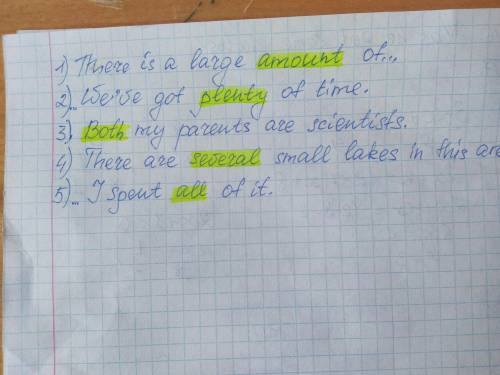 1) There is a large amount of...
2)... We've got plenty of time.
3). Both my parents are scientists.
4) There are several small lakes in this are
5)... I spent all of it.